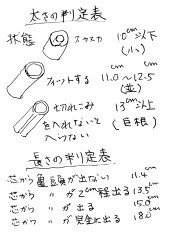 太さの判定表
状態 スカスカ 10cm以下
(小)
フィットする 11.0〜12.5cm
(並)
切れこみ 13cm以上
を入れないと (巨根)
入らない
長さの判定表
芯から亀頭が出ない 11.4cm
芯から 〃 が2cm程出る 13.5cm
芯から 〃 が出る 15.0cm
芯から 〃 が完全に出る 18.0cm